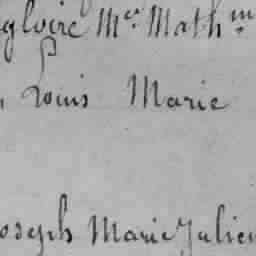 gloire Mce Math
Louis Marie
oseph Marie Julien